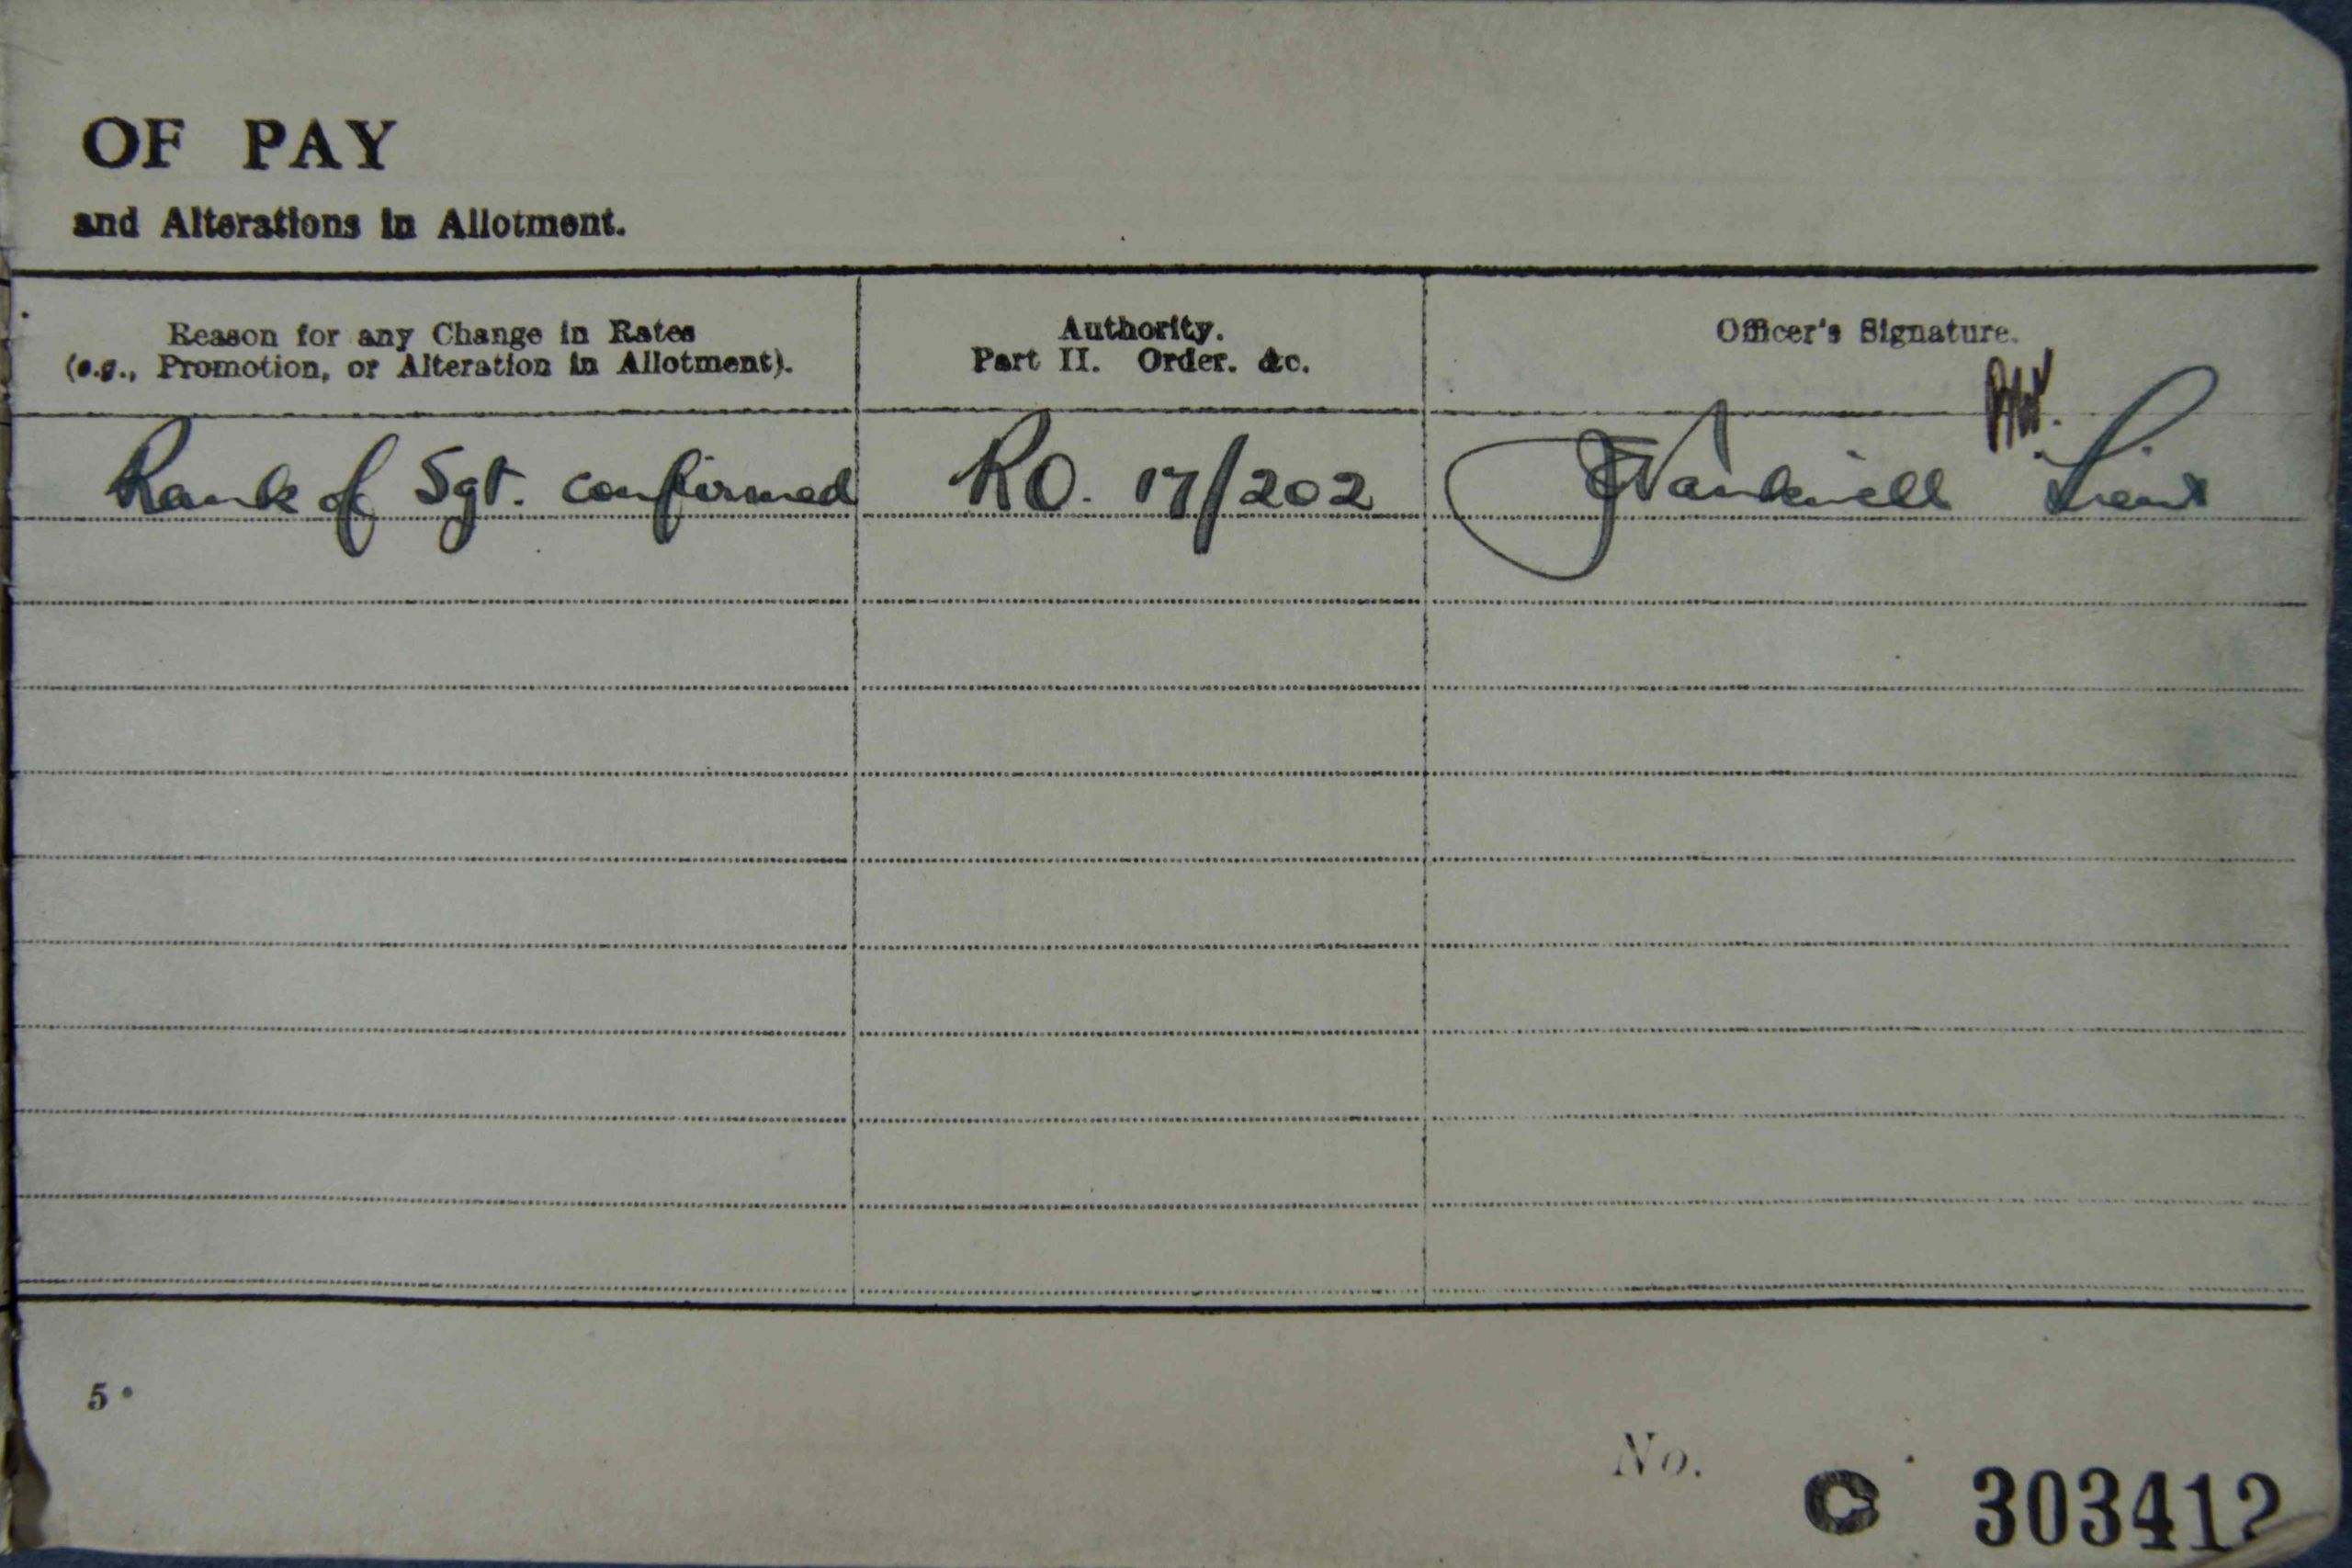 OF PAY
and Alterations in Allotment.
Reason for any Change in Rates
(e.g., Promotion, or Alteration in Allotment).
Authority.
Part II. Order. &c.
Officer's Signature.
Rank of Sgt. confirmed
RO. 17/202
Lieut
5
No.
C 303412